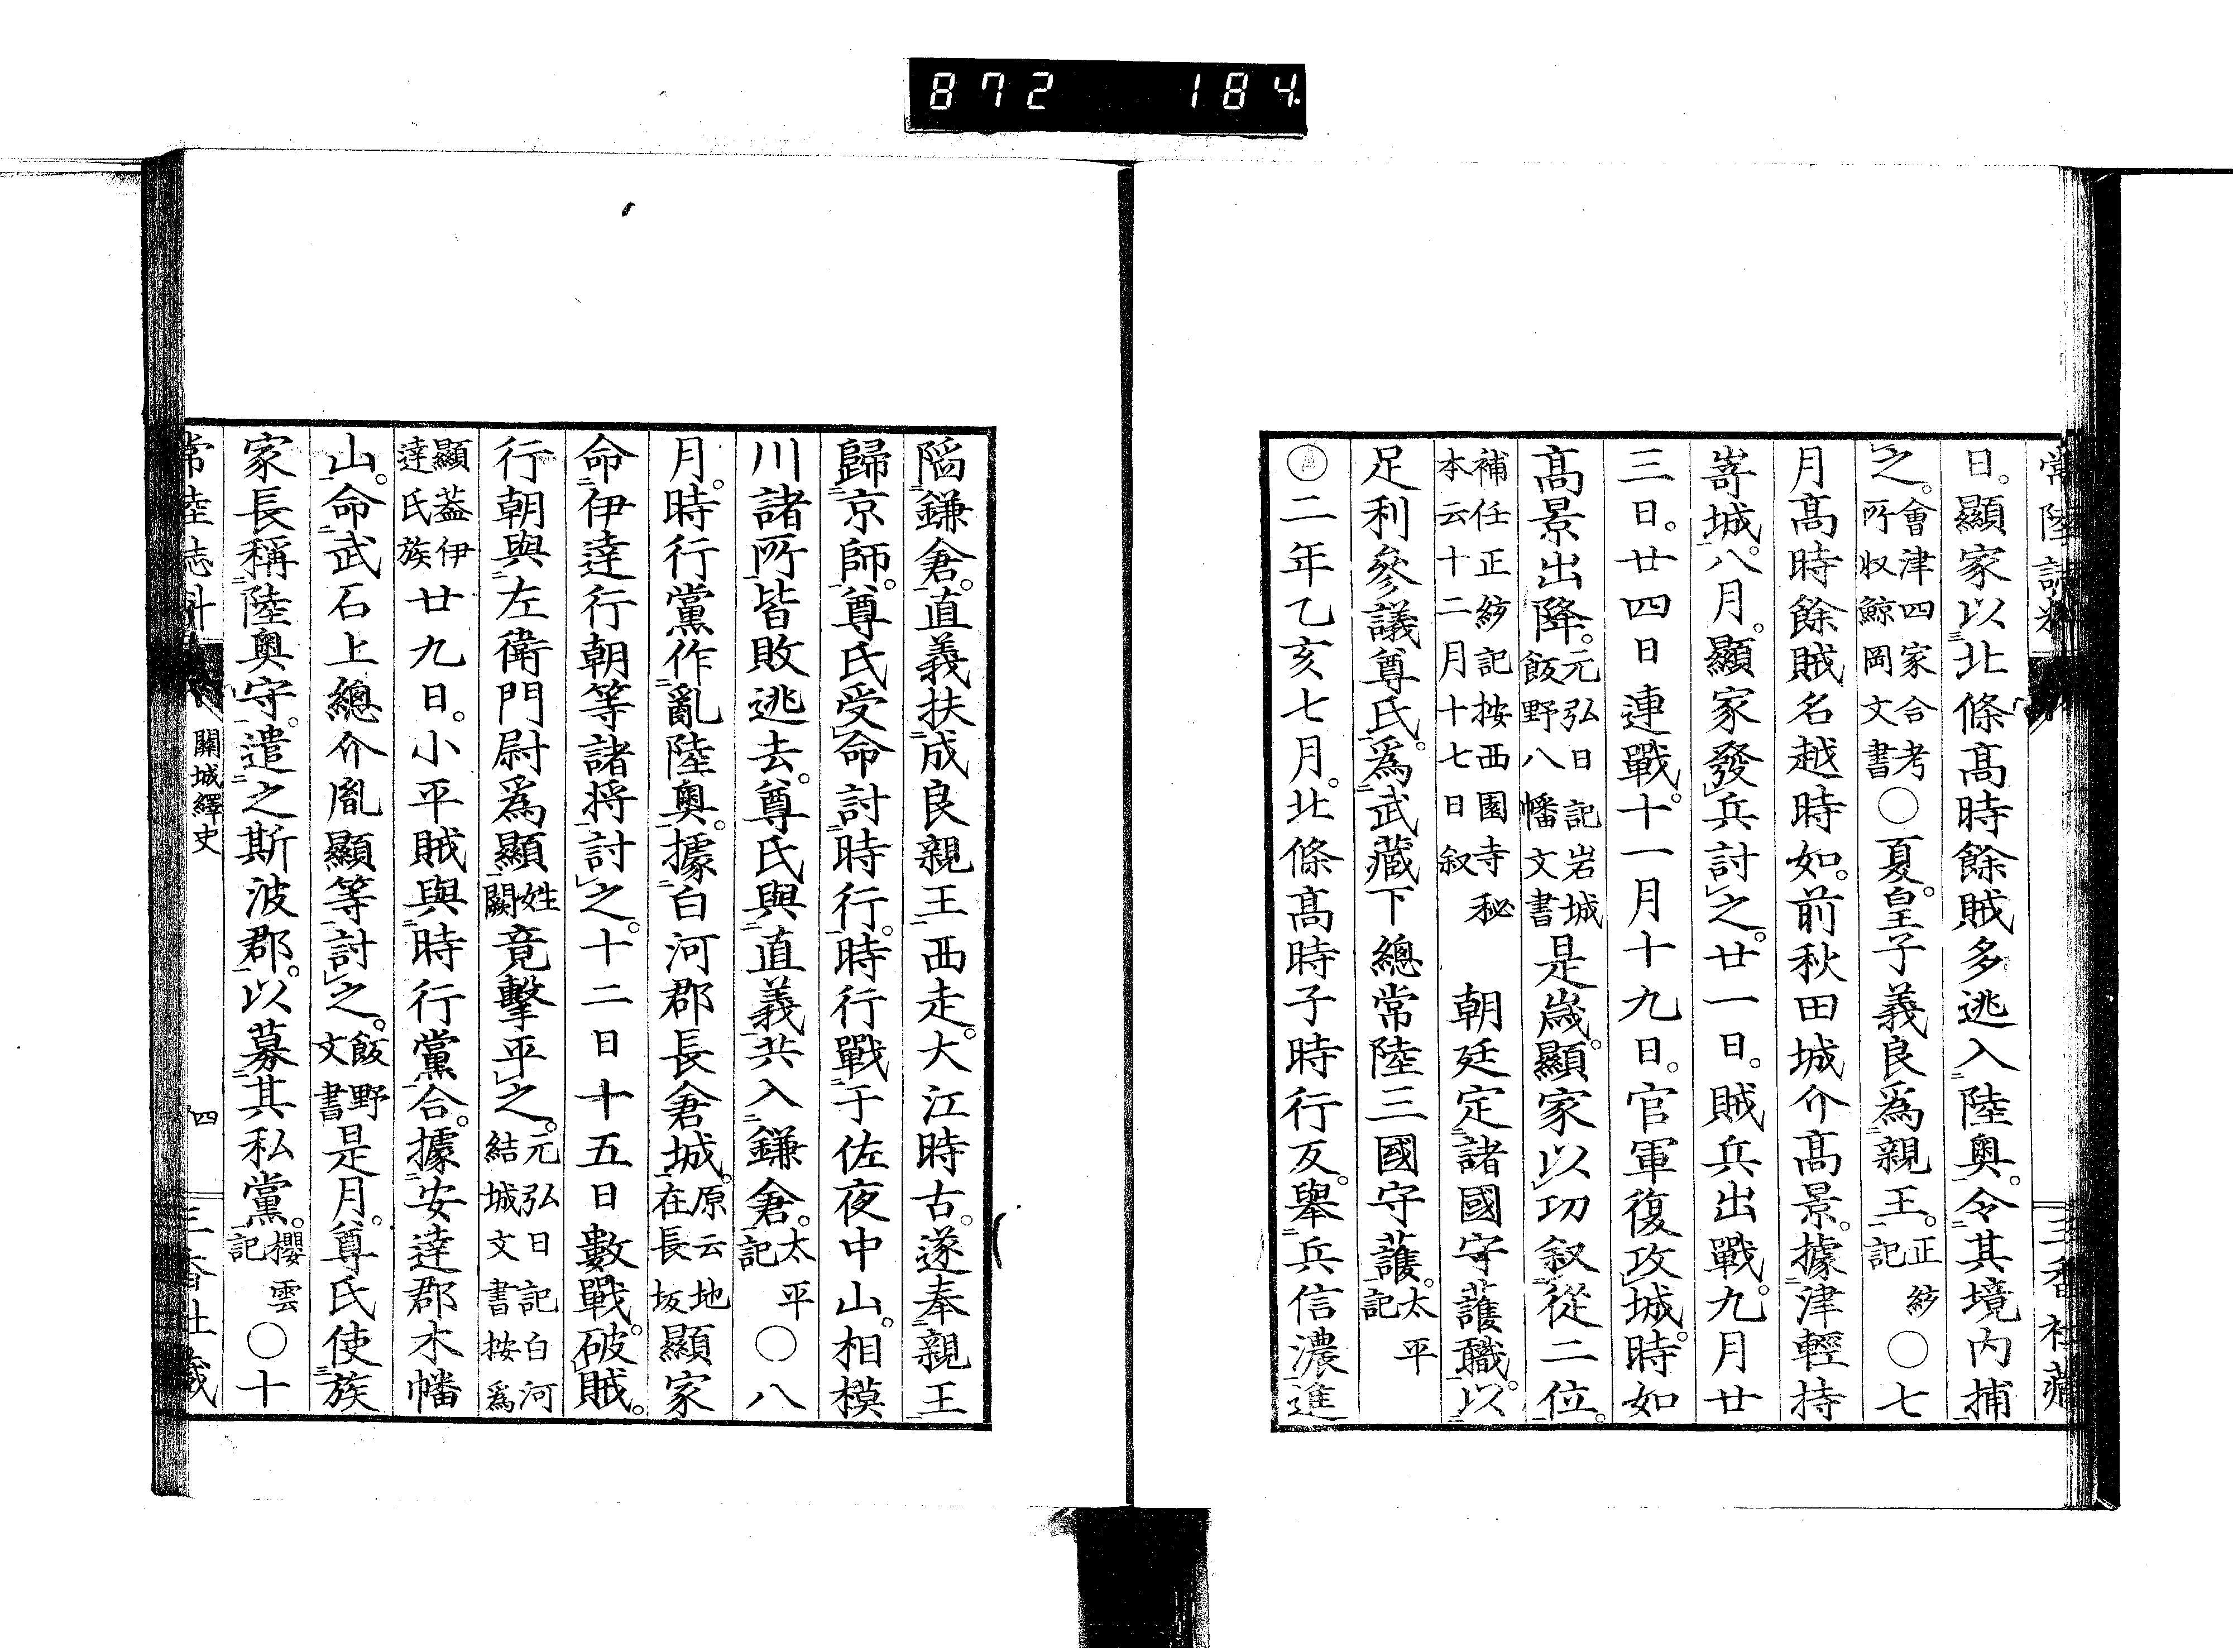 872 184.
日。顯家以北條髙時餘賊多逃入陸奥。令其境内捕
之。會津四家合考所収鯨岡文書○夏。皇子義良爲親王。正統記○七
月髙時餘賊名越時如。前秋田城介髙景。據津輕持
寄城。八月。顯家發兵討之。廿一日。賊兵出戰。九月廿
三日。廿四日連戰。十一月十九日。官軍復攻城。時如
髙景出降。元弘日記岩城飯野八幡文書是歳。顯家以功叙從二位。
補任正統記按西園寺秘本云十二月十七日叙 朝廷定諸國守護職。以
足利參議尊氏。爲武藏下總常陸三國守護。太平記
二年乙亥七月。北條髙時子時行反。擧兵信濃進
陷鎌倉。直義扶成良親王西走。大江時古。遂奉親王
歸京師。尊氏受命討時行。時行戰于佐夜中山。相模
川諸所皆敗逃去。尊氏與直義共入鎌倉。太平記○八
月。時行黨作亂陸奥。據白河郡長倉城。原云地在長坂顯家
命伊達行朝等諸将討之。十二日十五日數戰。破賊。
行朝與左衛門尉爲顯姓闕竟擊平之。元弘日記白河結城文書按爲
顯蓋伊達氏族廿九日。小平賊與時行黨合。據安達郡木幡
山。命武石上總介胤顯等討之。飯野文書是月。尊氏使族
家長稱陸奥守。遣之斯波郡。以募其私黨。櫻雲記○十
關城繹史
四